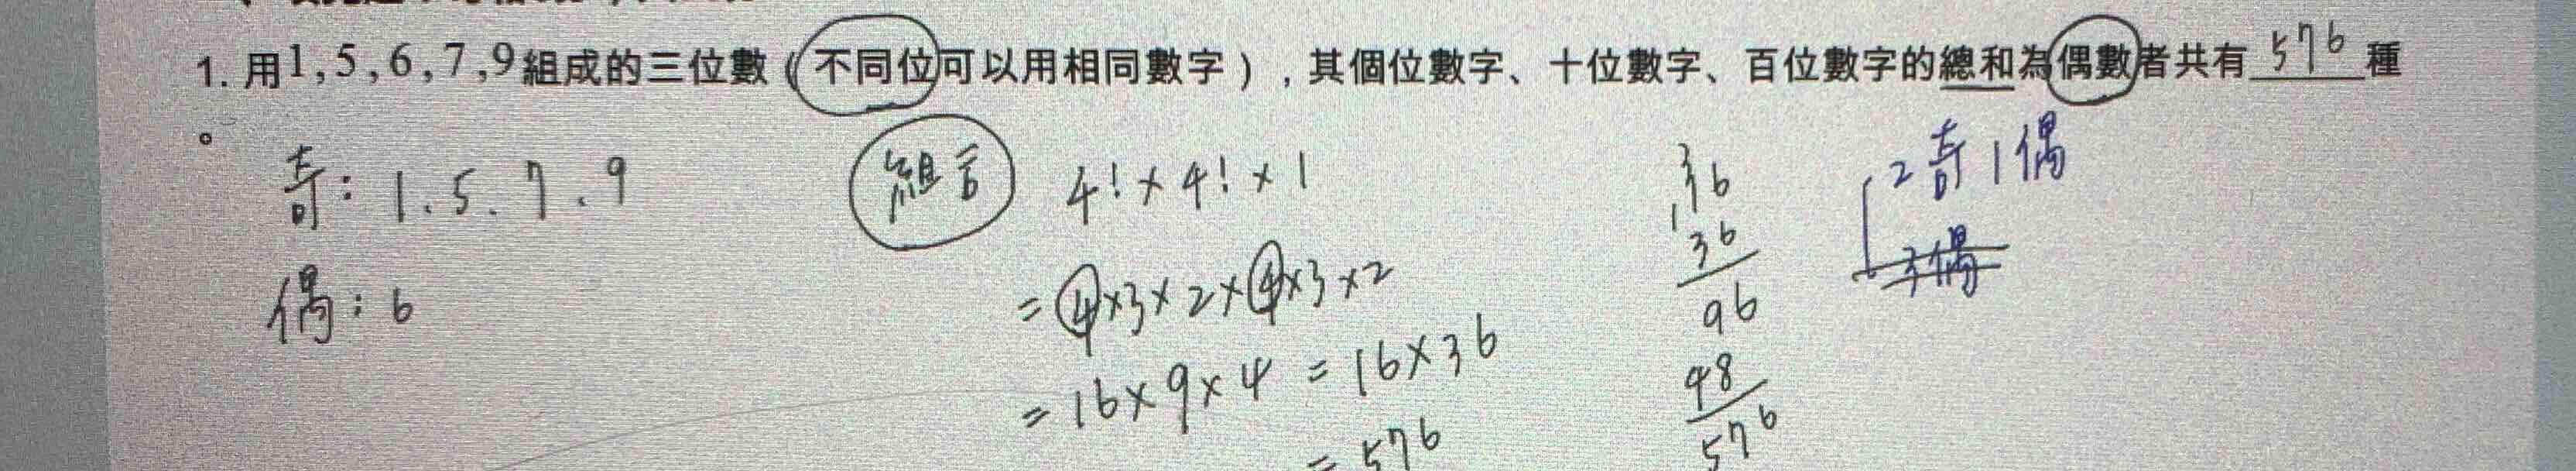 1. 用1,5,6,7,9組成的三位數(不同位可以用相同數字),其個位數字、十位數字、百位數字的總和為偶數者共有 576 種
。
奇: 1. 5. 7. 9
偶: 6
4! × 4! × 1
= 4×3×2×4×3×2
= 16×9×4 = 16×36
= 576
16
36
96
48
576
2奇1偶
3偶